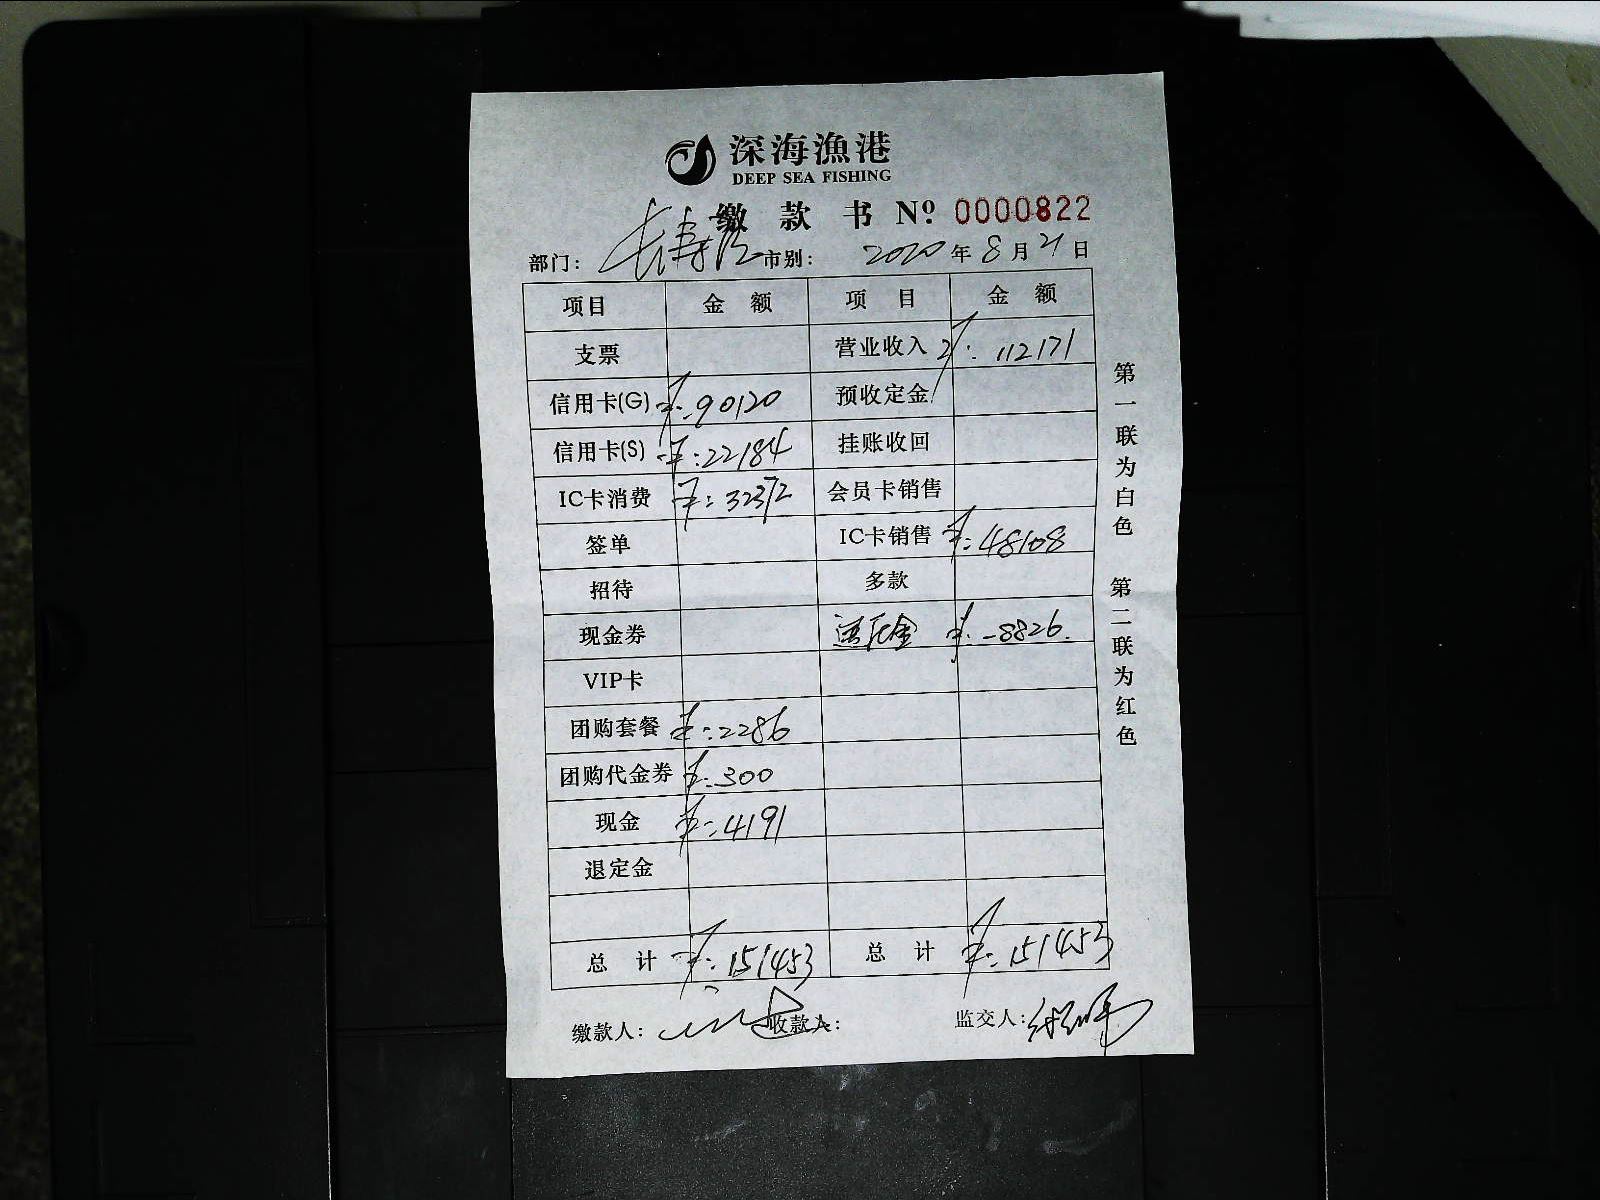 深海漁港
DEEP SEA FISHING
缴款书 Nº 0000822
部门: 长寿路 市别: 2020年8月21日
项目 金额 项目 金额
支票 营业收入 ¥: 112171
信用卡(G) ¥: 90120 预收定金
信用卡(S) ¥: 22184 挂账收回
IC卡消费 ¥: 32372 会员卡销售
签单 IC卡销售 ¥: 48108
招待 多款
现金券 ¥: -8826
VIP卡
团购套餐 ¥: 2286
团购代金券 ¥: 300
现金 ¥: 4191
退定金
总计 ¥: 151453 总计 ¥: 151453
缴款人: 收款人: 监交人:
第一联为白色 第二联为红色